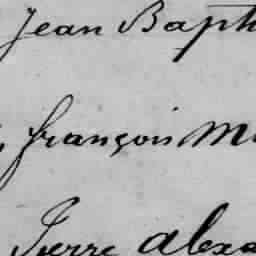 Jean Bapt
françois M
Pierre alexa